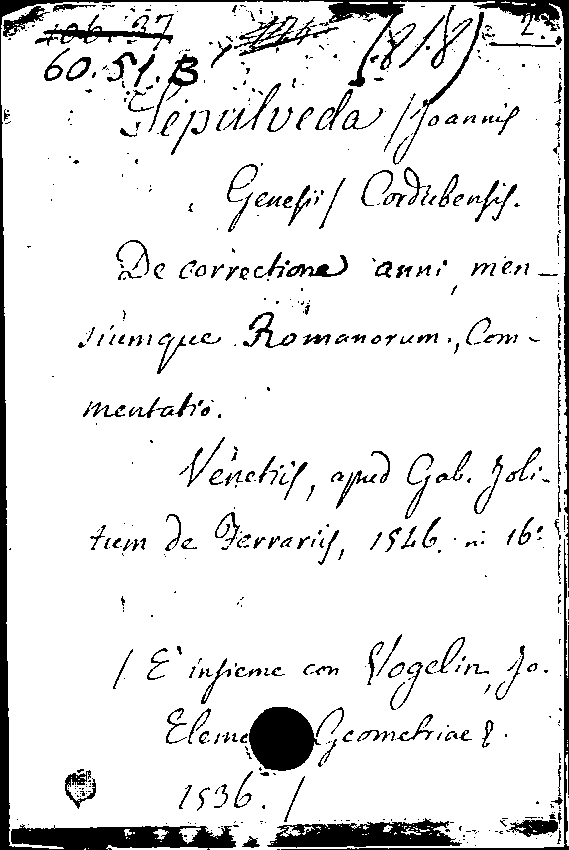 106. 37
60. 51. B (8/8) 2
Sepulveda / Joannis
Genesii / Cordubensis.
De correctione anni, men-
siumque Romanorum., Com-
mentatio.
Venetiis, apud Gab. Joli-
tum de Ferrariis, 1546. in 16º
/ E' insieme con Vogelin, Jo.
Eleme Geometriae &.
1536. /